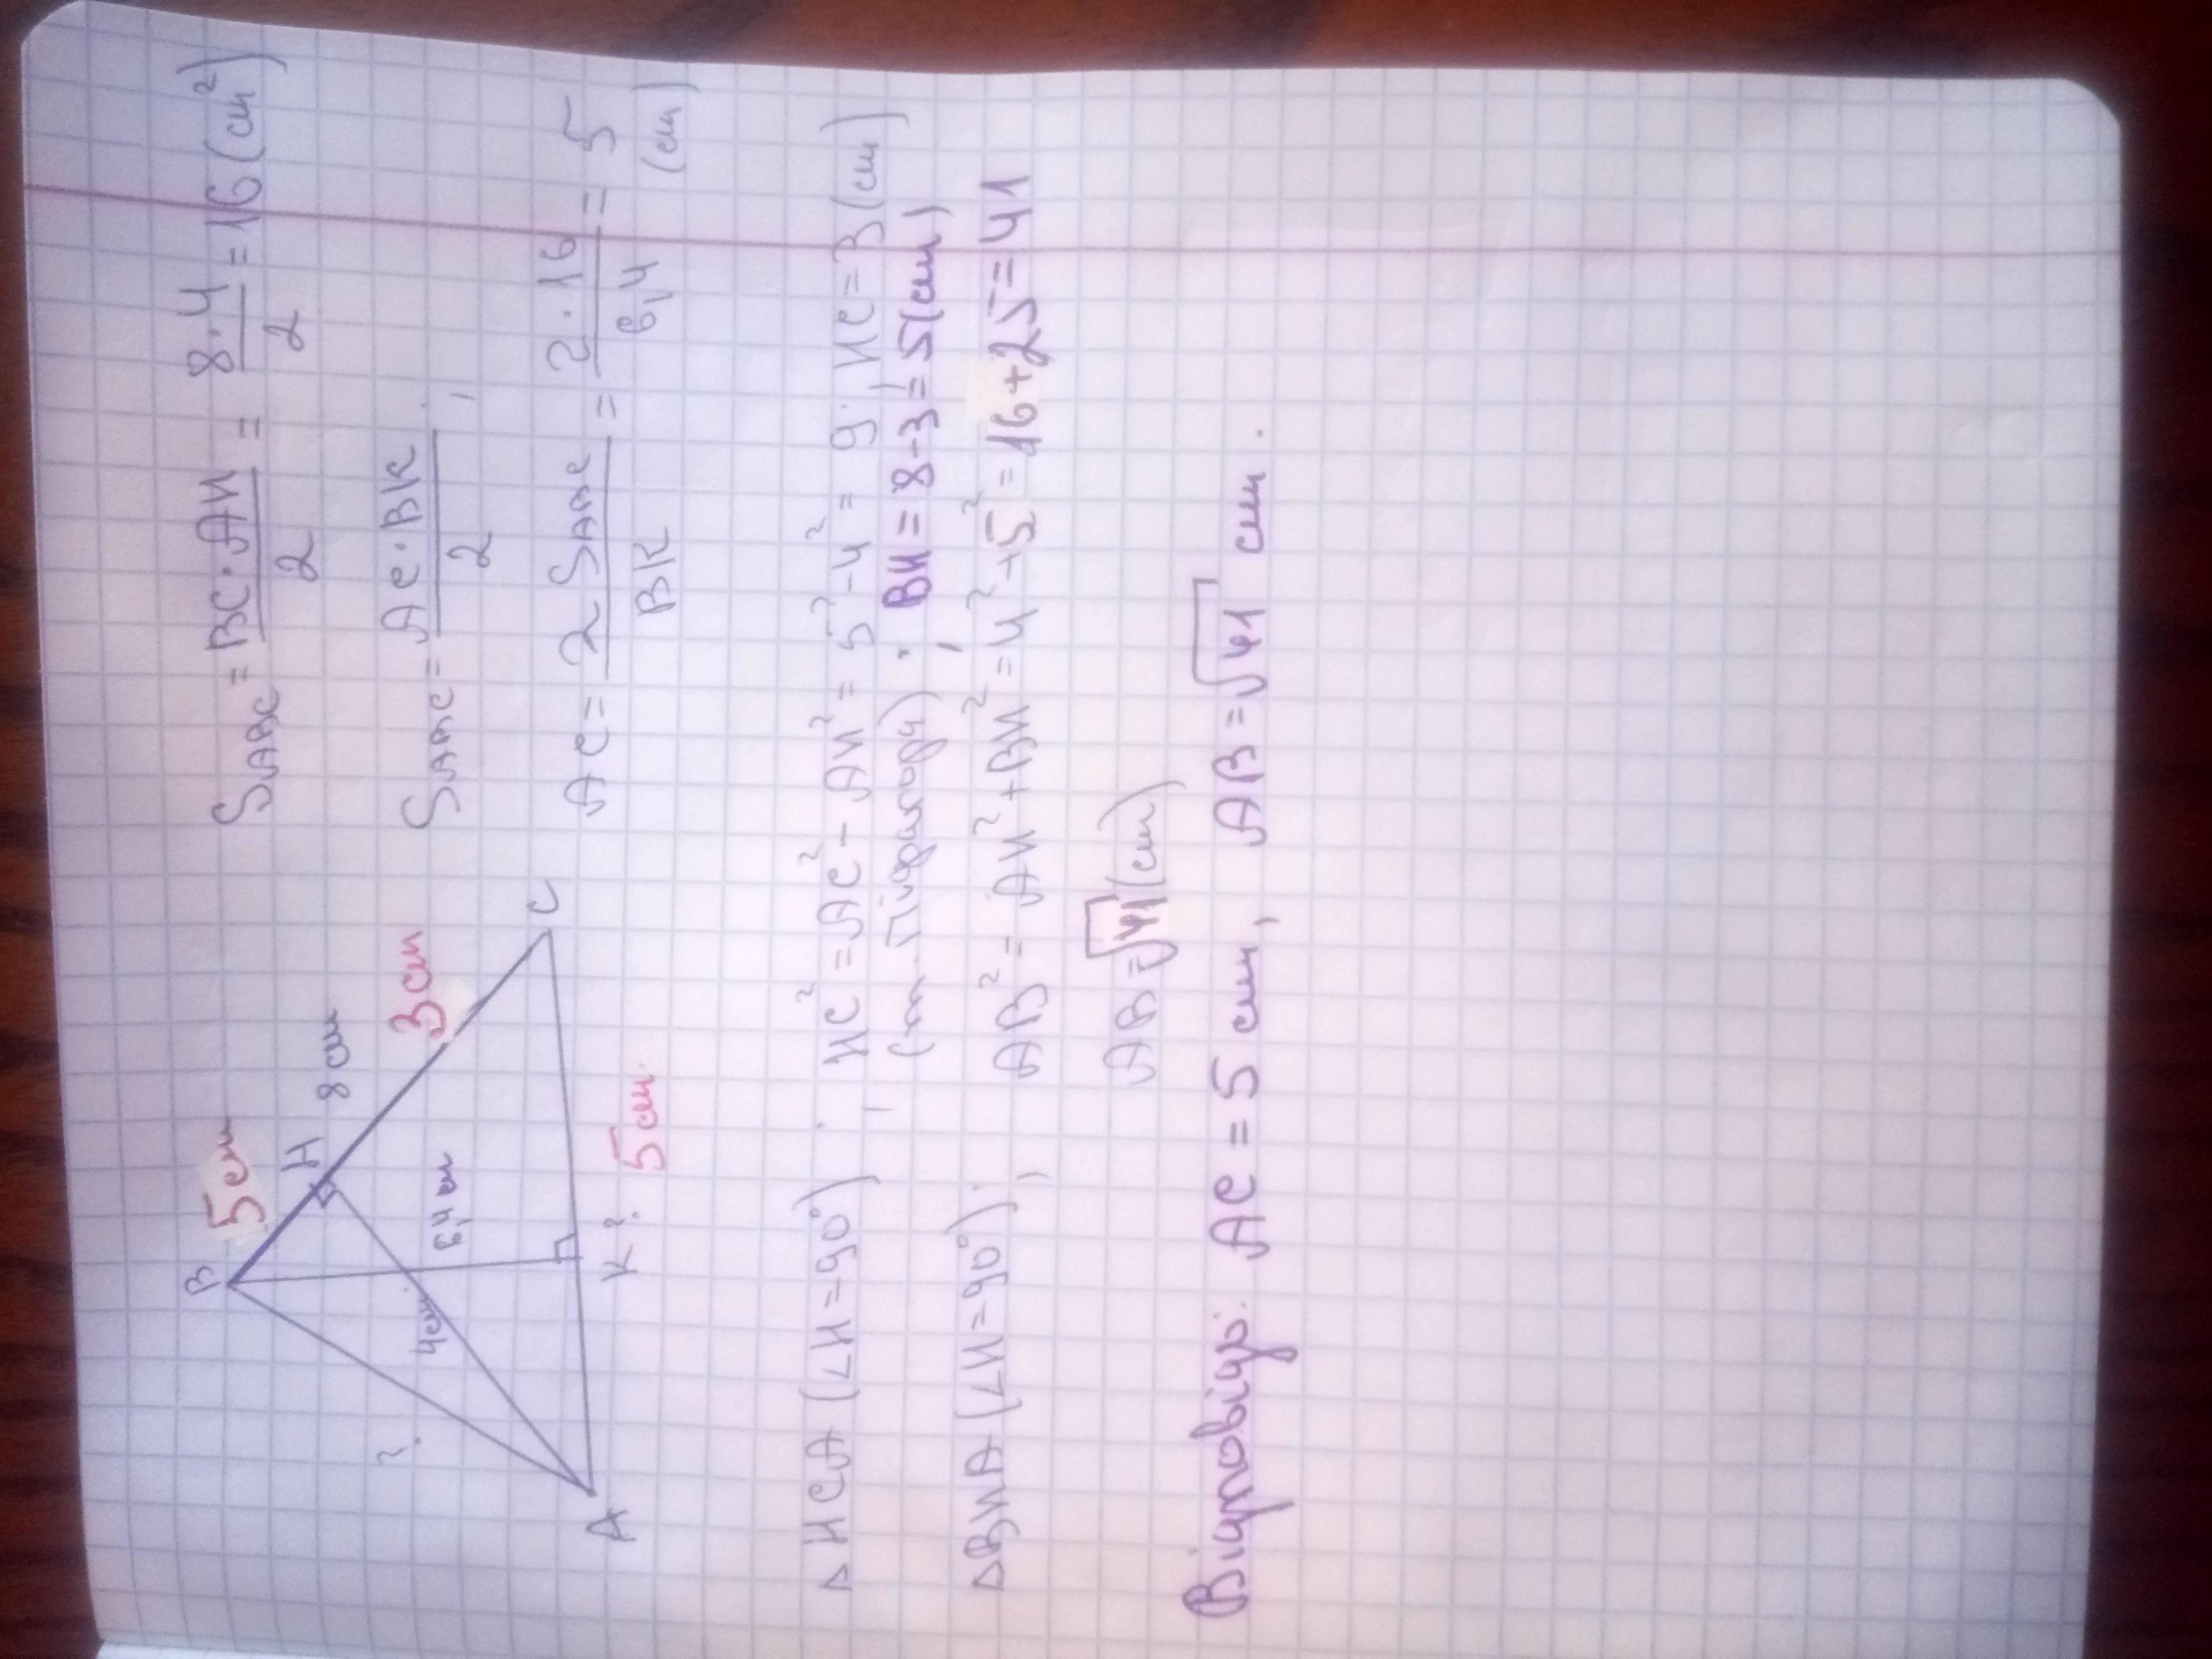 B
5 см
H
8 см
3 см
C
?
4 см
6,4 см
A
K ?
5 см.
S_ABC = BC·AH/2 = 8·4/2 = 16 (см²)
S_ABC = AC·BK/2 ;
AC = 2 S_ABC/BK = 2·16/6,4 = 5 (см)
Δ HCA (∠H=90°) ; HC² = AC² - AH² = 5² - 4² = 9; HC = 3 (см)
(т. Піфагора) ; BH = 8-3 = 5 (см)
Δ BHA (∠H=90°) ; AB² = AH² + BH² = 4² + 5² = 16+25 = 41
AB = √41 (см)
Відповідь: AC = 5 см, AB = √41 см.